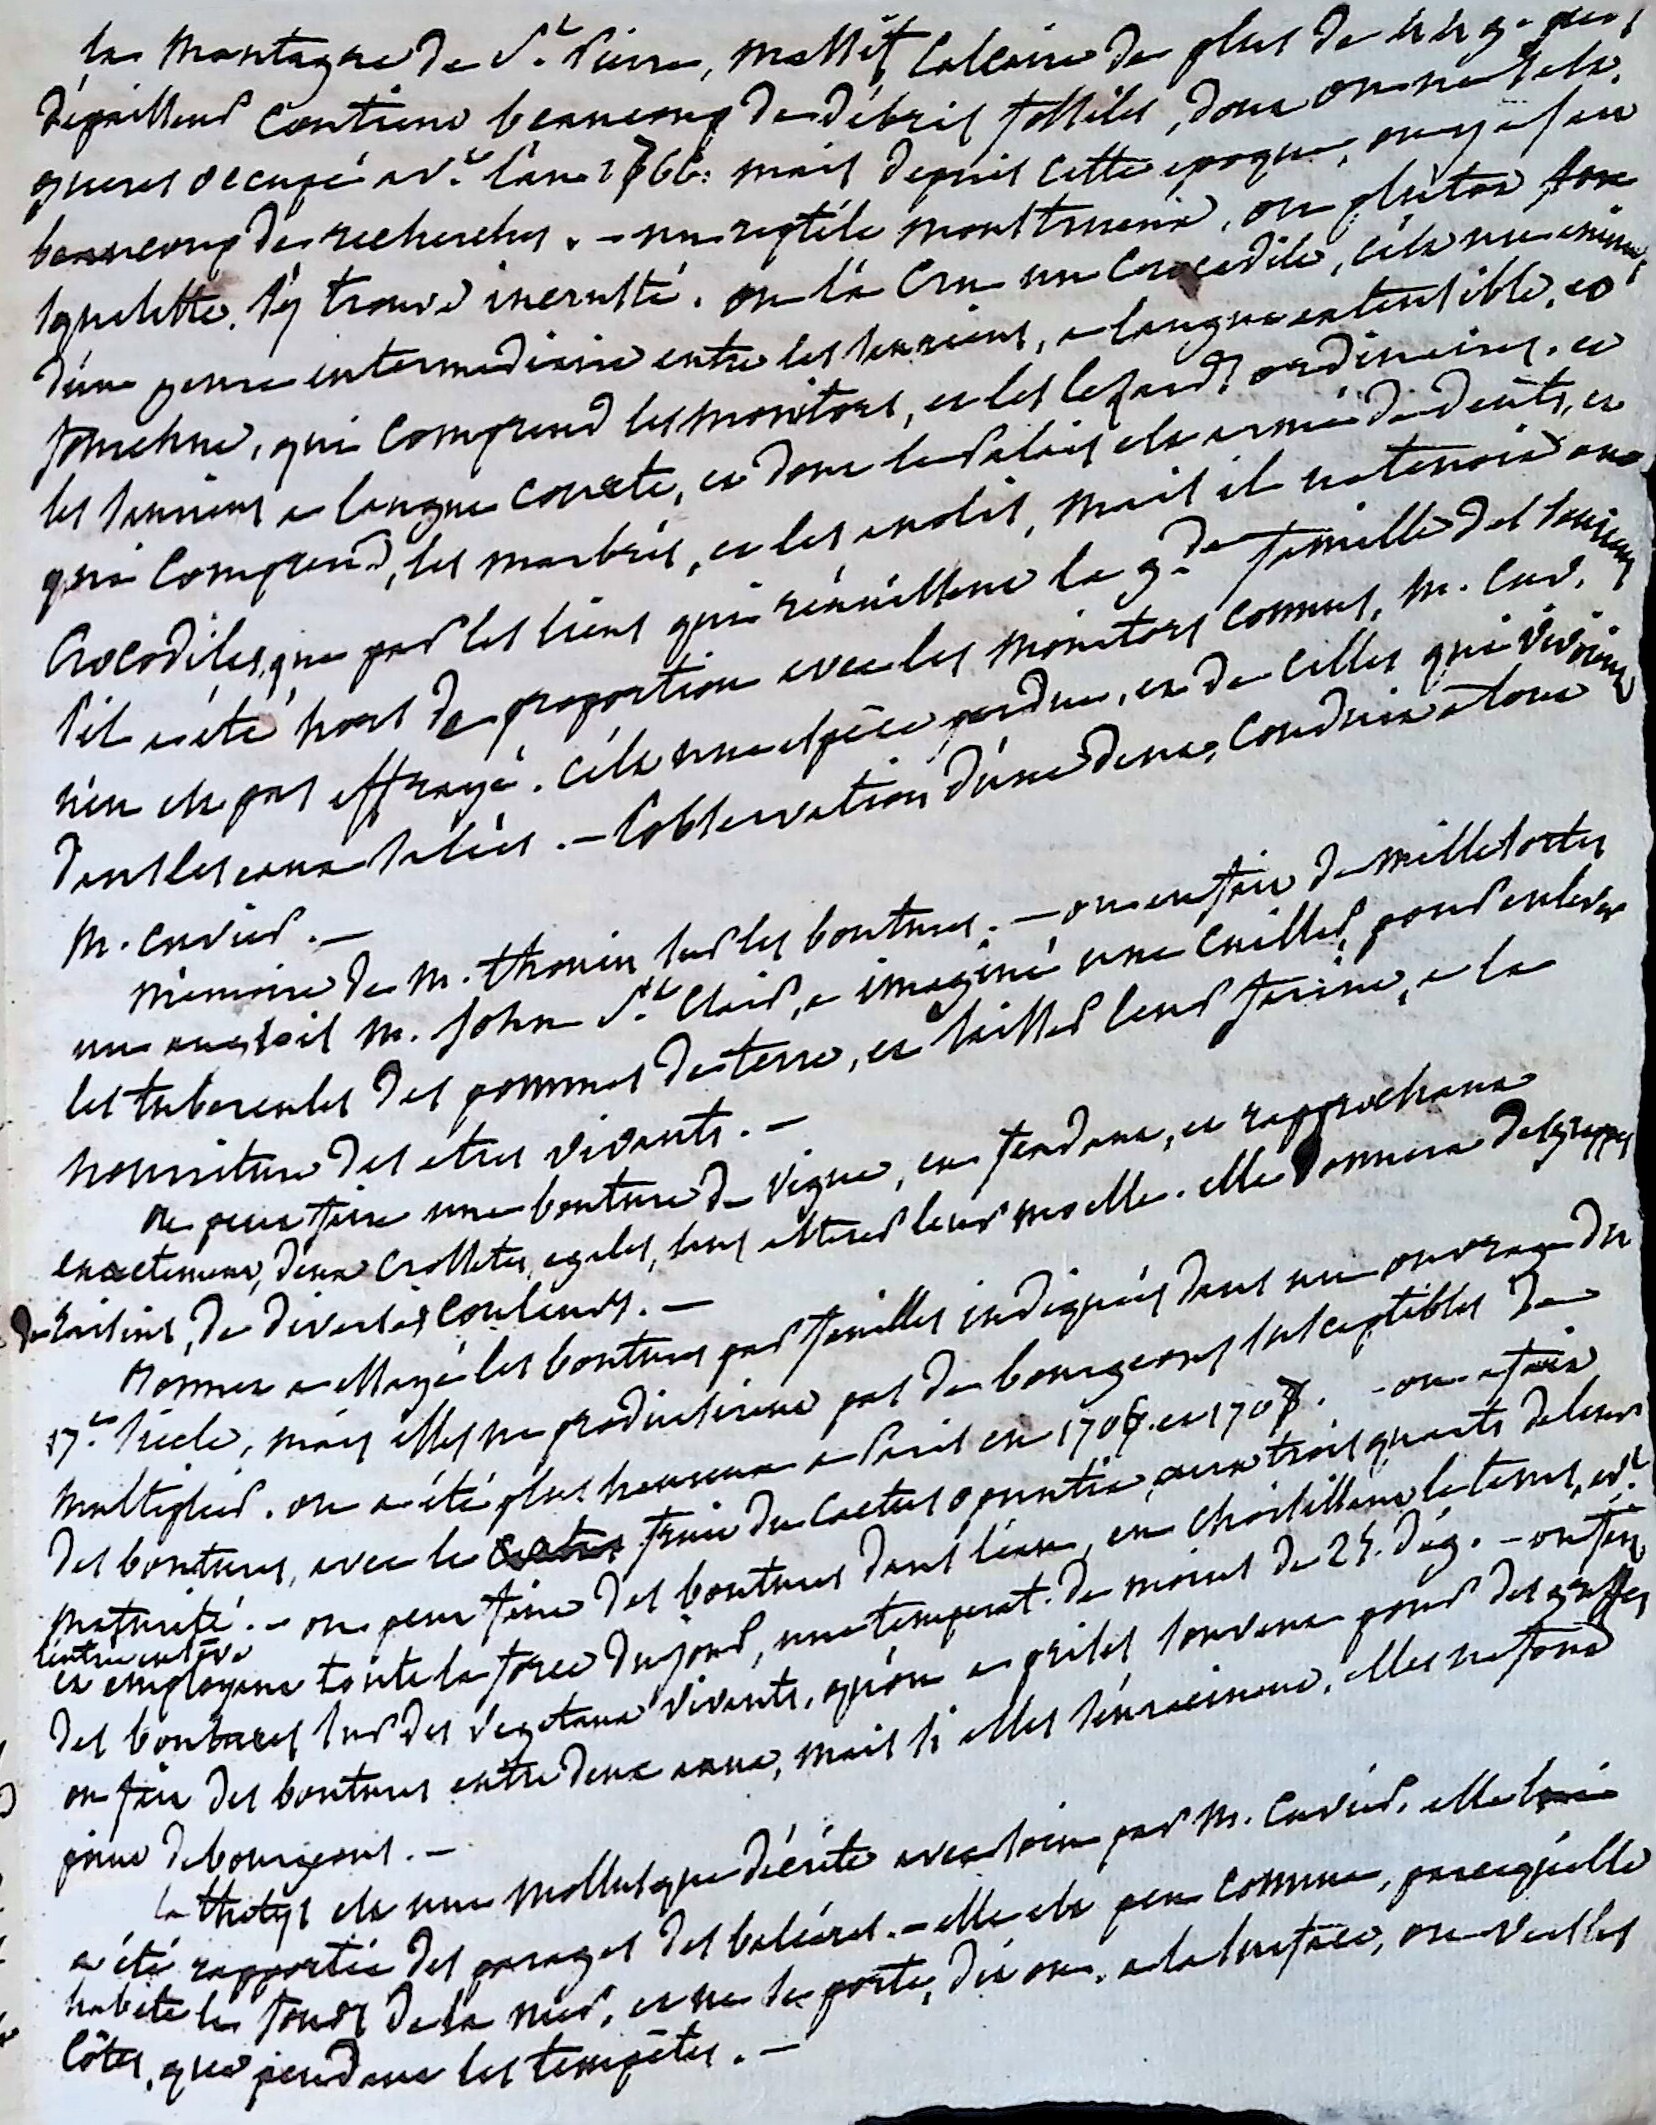 la montagne de St. Pierre, massif calcaire de plus de
d'épaisseur contient beaucoup de débris fossiles, dont on ne s'est
gueres occupé avt. l'an 1766. mais depuis cette epoque, on y a fait
beaucoup de recherches. - un reptile monstrueux, ou plutôt son
squelette, s'y trouve incrusté. on l'a cru un crocodile, c'est un animal
d'un genre intermediaire entre les sauriens, a langue extensible, et
fourchue, qui comprend les monitors, et les lezards ordinaires. et
les sauriens a langue courte, et dont le palais est armé de dents, et
qui comprend, les marbrés, et les anolis, mais il ne tenoit aux
crocodiles, que par les liens qui réunissent la gde. famille des sauriens
s'il a été hors de proportion avec les monitors connus, M. Cuv.
n'en est pas effrayé. c'est une espèce perdue, et de celles qui vivoient
dans les eaux salées. - l'observation d'une dent, conduit a tout
M. Cuvier. -
Mémoire de M. Thouin sur les boutures. - on en fait de mille sortes
un anglois M. John St. Clair, a imaginé une cuiller, pour enlever
les tubercules des pommes de terre, et laisser leur farine, a la
nourriture des etres vivants. -
on peut faire une bouture de vigne, en fendant, et rapprochant
exactement, deux crossettes, egales, sans alterer leur moelle. elle donnera des grappes
de raisins, de diverses couleurs. -
Bonnet a essayé les boutures par feuilles indiqués dans un ouvrage du
17e. siècle, mais elles ne produisirent pas de bourgeons susceptibles de
multiplier. on a été plus heureux a Paris en 1706. et 1707. - on a fait
des boutures, avec le fruit du cactus opuntia, aux trois quarts de leur
maturité. - on peut faire des boutures dans l'eau, en choisissant le tems, avt.
l'entrée en sève
et employant toute la force du jour, une temperat. de moins de 25. dég. - on fait
des boutures sur des vegetaux vivants, qu'on a prises souvent pour des greffes
on fait des boutures entre deux eaux, mais si elles s'enracinent, elles ne font
point de bourgeons. -
la thetys est une mollusque décrite avec soin par M. Cuvier. elle
a été rapportée des parages des baléares. - elle est peu comune, parcequ'elle
habite le fonds de la mer, et ne se porte, dit on, a la surface, ou vers les
côtes, que pendant les tempêtes. -